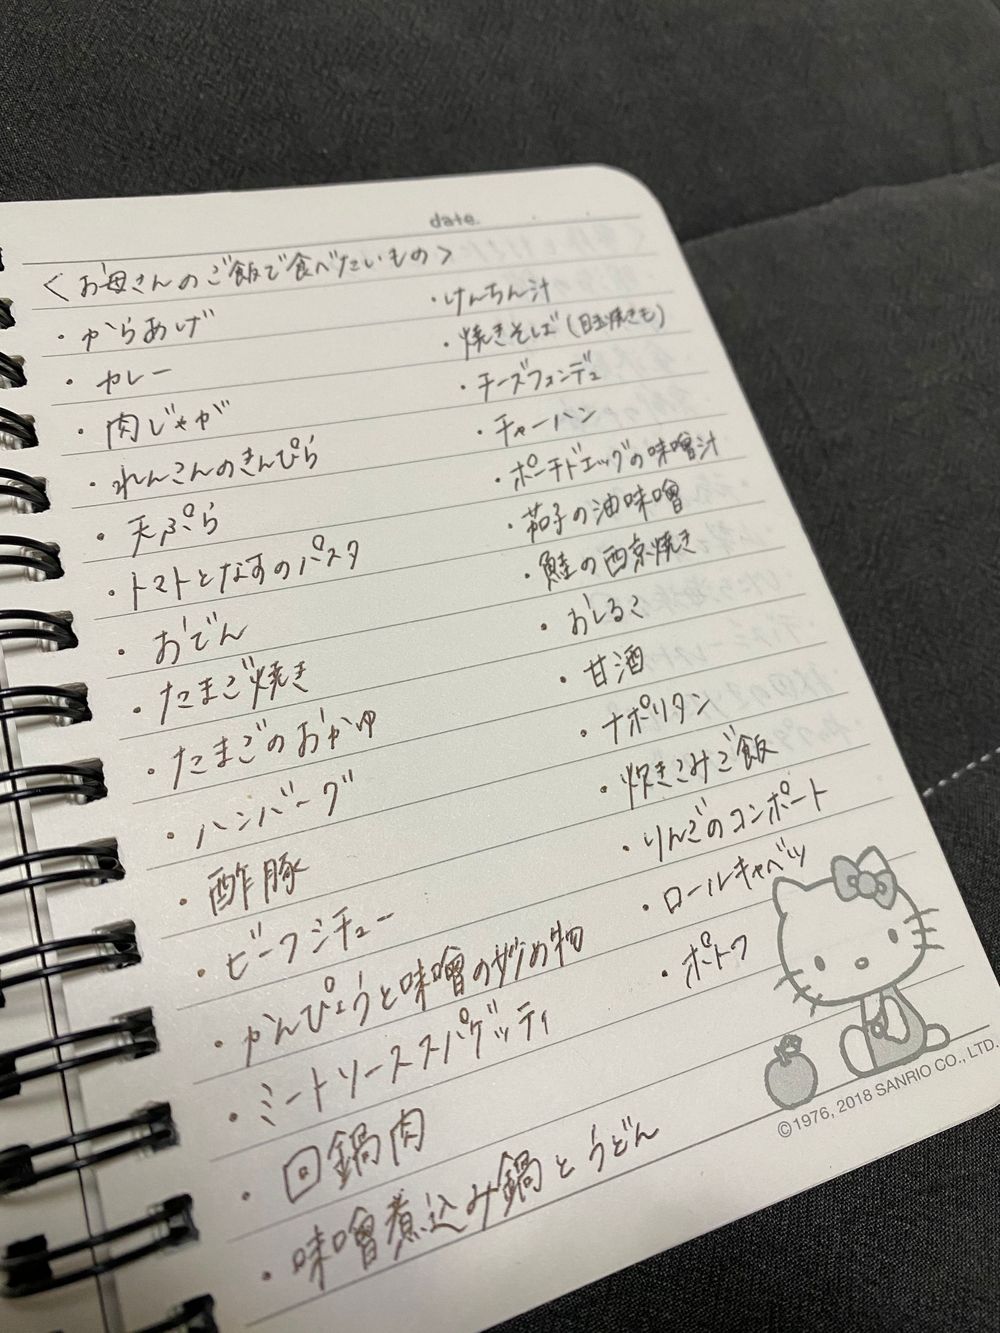 date.
<お母さんのご飯で食べたいもの>
・からあげ
・カレー
・肉じゃが
・れんこんのきんぴら
・天ぷら
・トマトとなすのパスタ
・おでん
・たまご焼き
・たまごのおかゆ
・ハンバーグ
・酢豚
・ビーフシチュー
・かんぴょうと味噌の炒め物
・ミートソーススパゲッティ
・回鍋肉
・味噌煮込み鍋とうどん
・けんちん汁
・焼きそば(目玉焼きも)
・チーズフォンデュ
・チャーハン
・ポーチドエッグの味噌汁
・茄子の油味噌
・鮭の西京焼き
・おしるこ
・甘酒
・ナポリタン
・炊きこみご飯
・りんごのコンポート
・ロールキャベツ
・ポトフ
©1976, 2018 SANRIO CO., LTD.